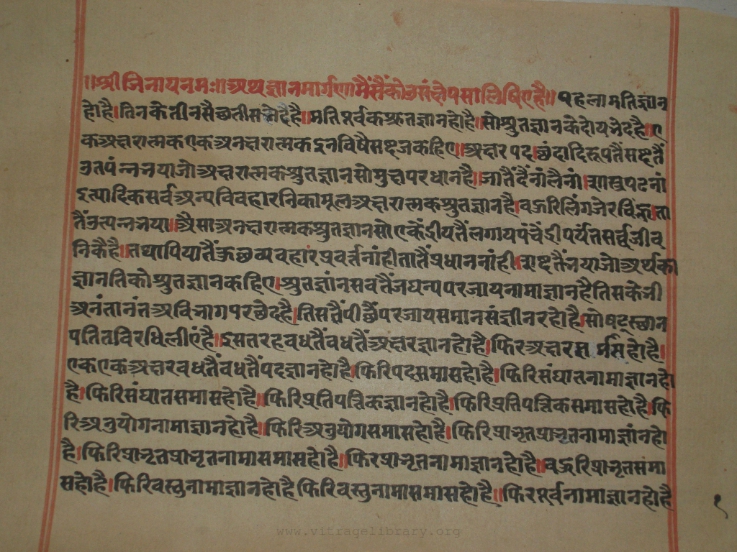 ॥श्रीजिनायनमः॥अथज्ञानमार्गणामैंसैंकोउसंक्षेपसालिषिएहै॥पहलामतिज्ञान
होहै।तिनकेतीनसैछतीसभेदहै।मतिपूर्वकश्रुतज्ञानहोहै।सोश्रुतज्ञानकेदोयभेदहै।ए
कअक्षरात्मकएकअनक्षरात्मकइनविषैसष्टजकहिए।अक्षरपदछंदादिरूपतैंसष्टतैं
उतपंन्नभयाजोअक्षरात्मकश्रुतज्ञानसोमुष्पपरधानहै।जातैंदैंनांलैनां।शास्त्रपढनां
इत्पादिकसर्वअन्पविवहारनिकामूलअक्षरात्मकश्रुतज्ञानहै।वऊरिलिंगजेरचिंन्ह।ता
तैंउत्पन्नभया।ऐसाअनक्षरात्मकश्रुतज्ञानसोएकेंद्रीयतैंलगायपंचेंद्रीपर्यंतसर्वजीव
निकैहै।तथापियातैंकछूव्यवहारप्रवर्त्तनांहीतातैंप्रधाननांही।सष्टतैंभयाजोअर्थका
ज्ञानतिकोश्रुतज्ञानकहिए।श्रुतज्ञानसवतैंजघन्यपरजायनामाज्ञानहैतिसकेभी
अनंतानंतअविभागपरछेदहै।तिसतैंपीछैंपरजायसमाससंज्ञीनरहोहै।सोषट्स्छान
पतितवरिधिलीएंहै।इसतरहवधतैंवधतैंअक्षरज्ञानहोहै।फिरअक्षरसमासहोहै।
एकएकअक्षरवधतैंवधतैंपदज्ञानहोहै।फिरिपदसमासहोहै।फिरिसंघातनामाज्ञानहो
है।फिरिसंघातसमासहोहै।फिरिप्रतिपत्रिकज्ञानहोहै।फिरिप्रतिपत्रिकसमासहोहै।फि
रिअनुयोगनामाज्ञानहोहै।फिरिअनुयोगसमासहोहै।फिरिप्राभृतप्राभृतनामाज्ञांनहो
है।फिरिप्राभृतप्राभृतनामासमासहोहै।फिरप्राभृतनामाज्ञानहोहै।वऊरिप्राभृतसमा
सहोहै।फिरिवस्तुनामाज्ञानहोहैफिरिवस्तुनामासमासहोहै॥फिरपूर्वनामाज्ञानहोहै
१
www.vitragelibrary.org